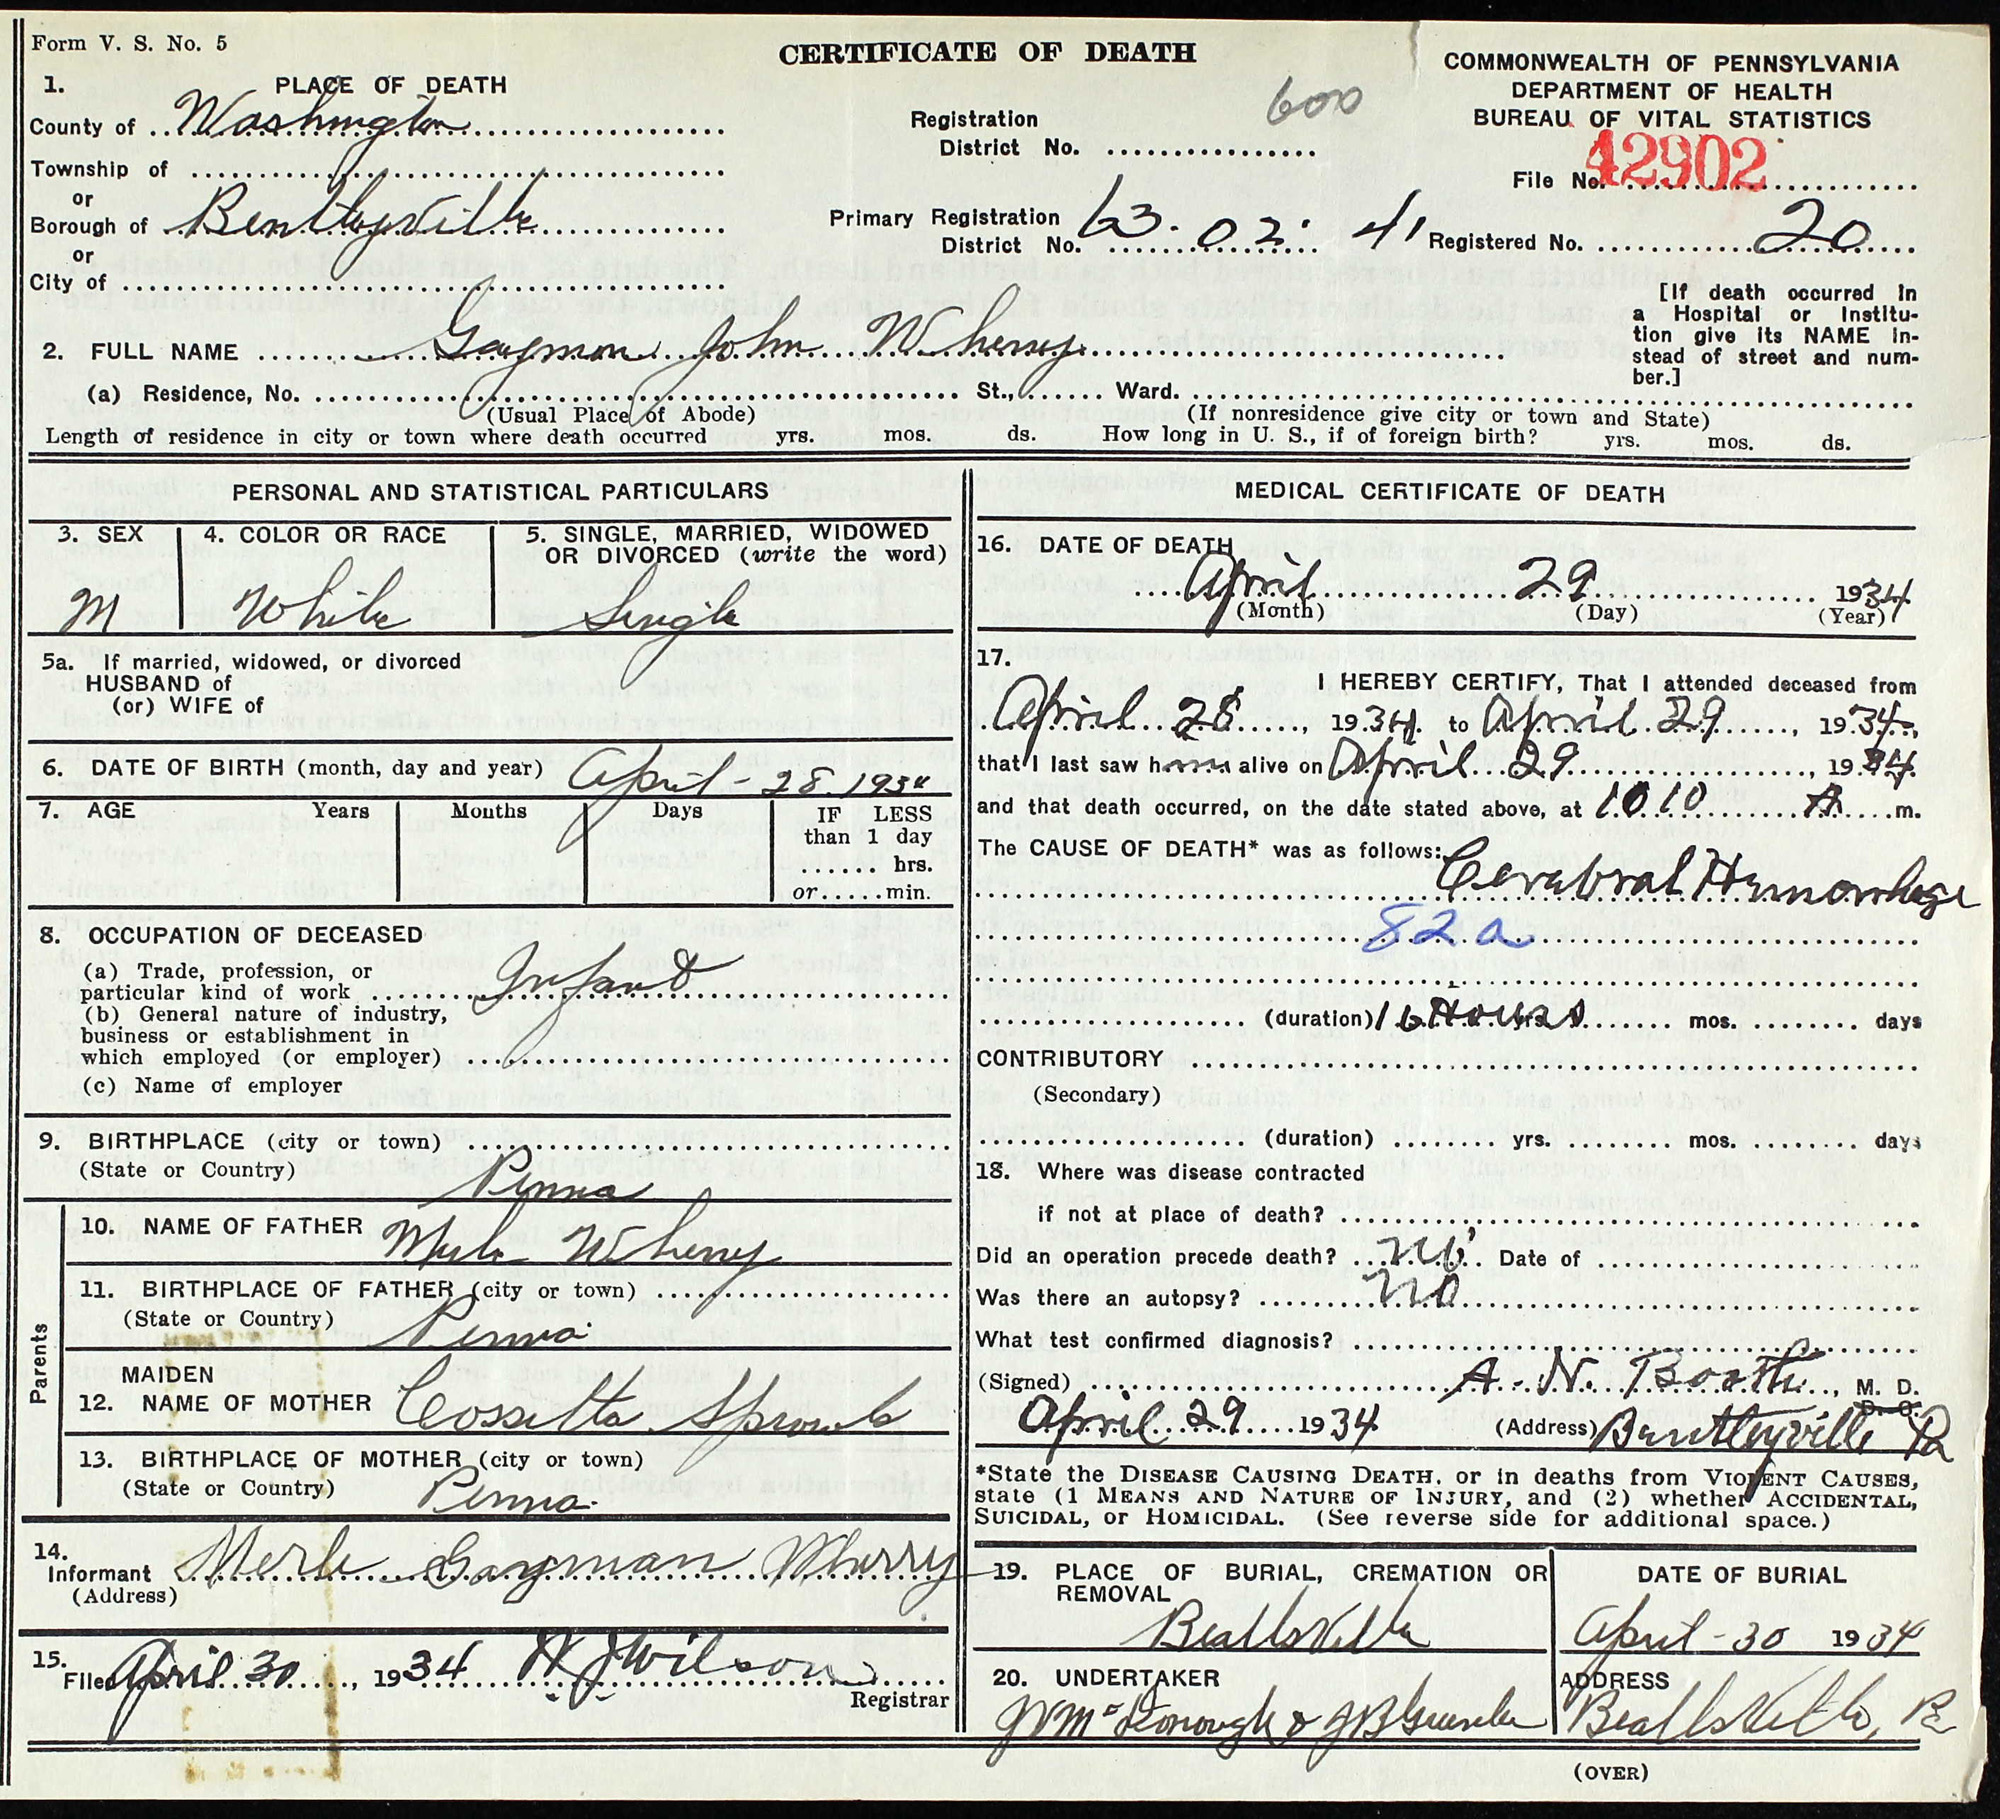 Form V. S. No. 5
CERTIFICATE OF DEATH
COMMONWEALTH OF PENNSYLVANIA
DEPARTMENT OF HEALTH
BUREAU OF VITAL STATISTICS
1. PLACE OF DEATH
County of Washington
Township of
or
Borough of Bentleyville
or
City of
Registration District No. 600
Primary Registration District No. 63-02-41
File No. 42902
Registered No. 20
[If death occurred in a Hospital or Institution give its NAME instead of street and number.]
2. FULL NAME Gayman John Wherry
(a) Residence, No. St., Ward.
(Usual Place of Abode) (If nonresidence give city or town and State)
Length of residence in city or town where death occurred yrs. mos. ds. How long in U. S., if of foreign birth? yrs. mos. ds.
PERSONAL AND STATISTICAL PARTICULARS
3. SEX M
4. COLOR OR RACE White
5. SINGLE, MARRIED, WIDOWED OR DIVORCED (write the word) Single
5a. If married, widowed, or divorced
HUSBAND of
(or) WIFE of
6. DATE OF BIRTH (month, day and year) April - 28. 1934
7. AGE Years Months Days IF LESS than 1 day
hrs.
or min.
8. OCCUPATION OF DECEASED
(a) Trade, profession, or
particular kind of work Infant
(b) General nature of industry,
business or establishment in
which employed (or employer)
(c) Name of employer
9. BIRTHPLACE (city or town)
(State or Country) Penna
Parents
10. NAME OF FATHER Merle Wherry
11. BIRTHPLACE OF FATHER (city or town)
(State or Country) Penna.
MAIDEN
12. NAME OF MOTHER Cossetta Sprowls
13. BIRTHPLACE OF MOTHER (city or town)
(State or Country) Penna.
14. Informant Merle Gayman Wherry
(Address)
15. Filed April 30, 1934 H J Wilson
Registrar
MEDICAL CERTIFICATE OF DEATH
16. DATE OF DEATH
April 29 1934
(Month) (Day) (Year)
17. I HEREBY CERTIFY, That I attended deceased from
April 28, 1934 to April 29, 1934,
that I last saw him alive on April 29, 1934
and that death occurred, on the date stated above, at 10 10 A m.
The CAUSE OF DEATH* was as follows:
Cerebral Hemorrhage
82a
(duration) 16 Hours yrs. mos. days
CONTRIBUTORY
(Secondary)
(duration) yrs. mos. days
18. Where was disease contracted
if not at place of death?
Did an operation precede death? no Date of
Was there an autopsy? no
What test confirmed diagnosis?
(Signed) A. N. Booth, M. D.
D. O.
April 29 1934 (Address) Bentleyville Pa
*State the DISEASE CAUSING DEATH, or in deaths from VIOLENT CAUSES,
state (1 MEANS AND NATURE OF INJURY, and (2) whether ACCIDENTAL,
SUICIDAL, or HOMICIDAL. (See reverse side for additional space.)
19. PLACE OF BURIAL, CREMATION OR REMOVAL
Beallsville
DATE OF BURIAL
April - 30 1934
20. UNDERTAKER
McDonough &
ADDRESS
Beallsville, Pa
(OVER)